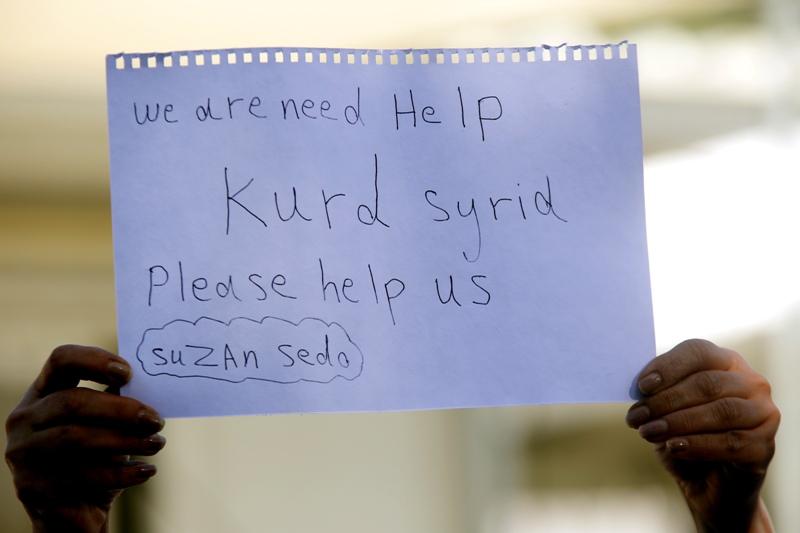 we are need Help
Kurd syria
Please help us
suZAn sedo